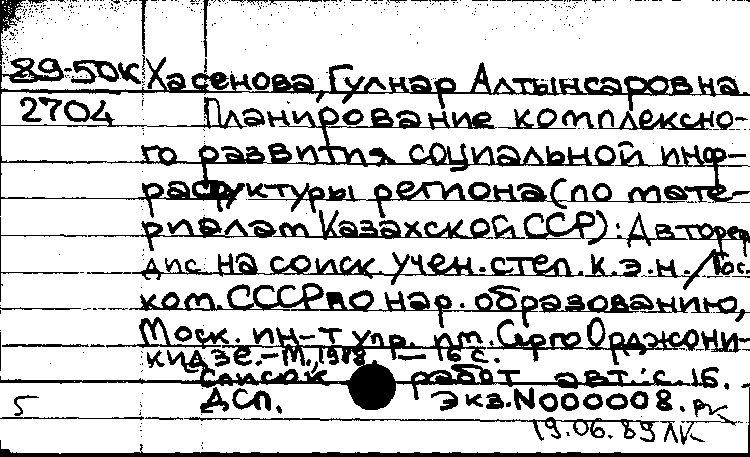 89-50К Хасенова, Гулнар Алтынсаровна.
2704 Планирование комплексно-
го развития социальной инф-
раструктуры региона (по мате-
риалам Казахской ССР): Автореф.
дис. на соиск. учен. степ. к. э. н. / Гос.
ком. СССР по нар. образованию,
Моск. ин-т упр. им. Серго Орджони-
кидзе. - М., 1988. - 16 с.
Список работ авт.: с. 16.
5 ДСП. Экз. N000008. РК
19.06.89 ЛК